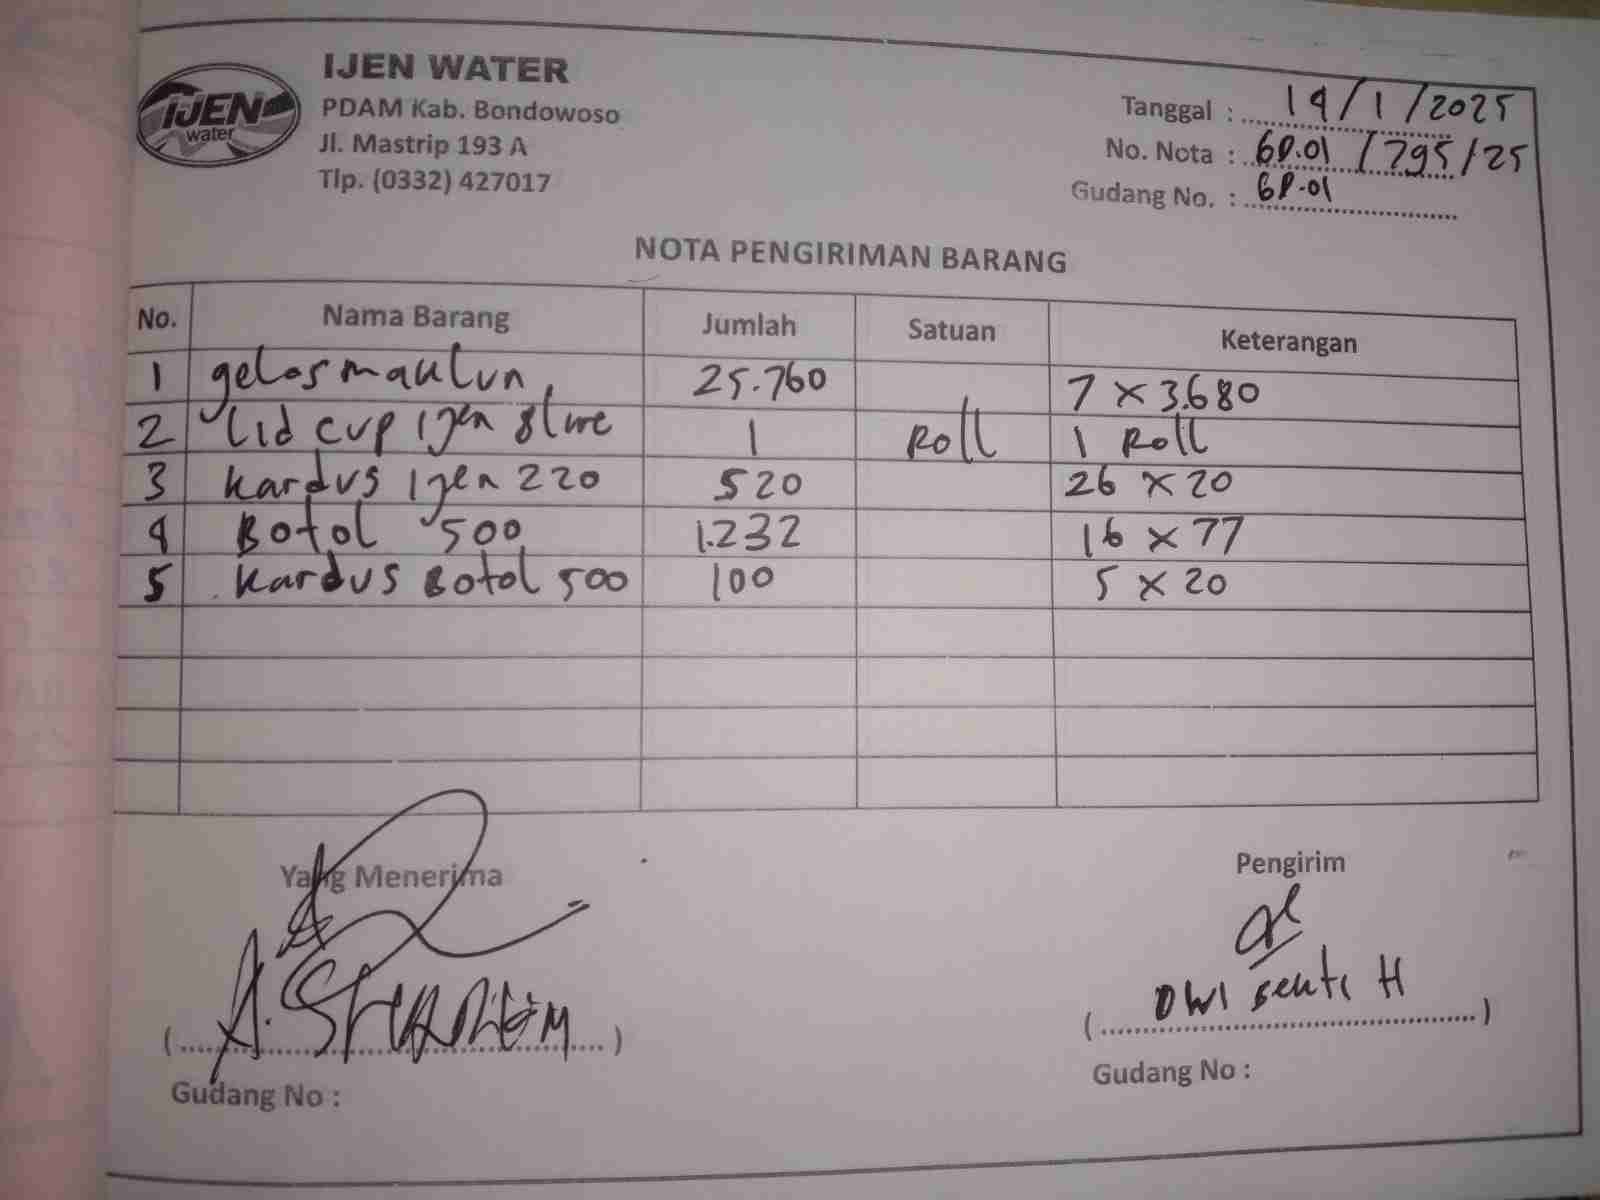 IJEN
water
IJEN WATER
PDAM Kab. Bondowoso
Jl. Mastrip 193 A
Tlp. (0332) 427017
Tanggal : 14/1/2025
No. Nota : /795/25
Gudang No. :
NOTA PENGIRIMAN BARANG
No. Nama Barang Jumlah Satuan Keterangan
1 gelas maklun 25.760 7 x 3.680
2 Lid cup Ijen 1 Roll 1 Roll
3 Kardus Ijen 220 520 26 x 20
4 Botol 500 1.232 16 x 77
5 Kardus Botol 500 100 5 x 20
Yang Menerima
Pengirim
A.
Dwi H
(....................) (....................)
Gudang No :
Gudang No :